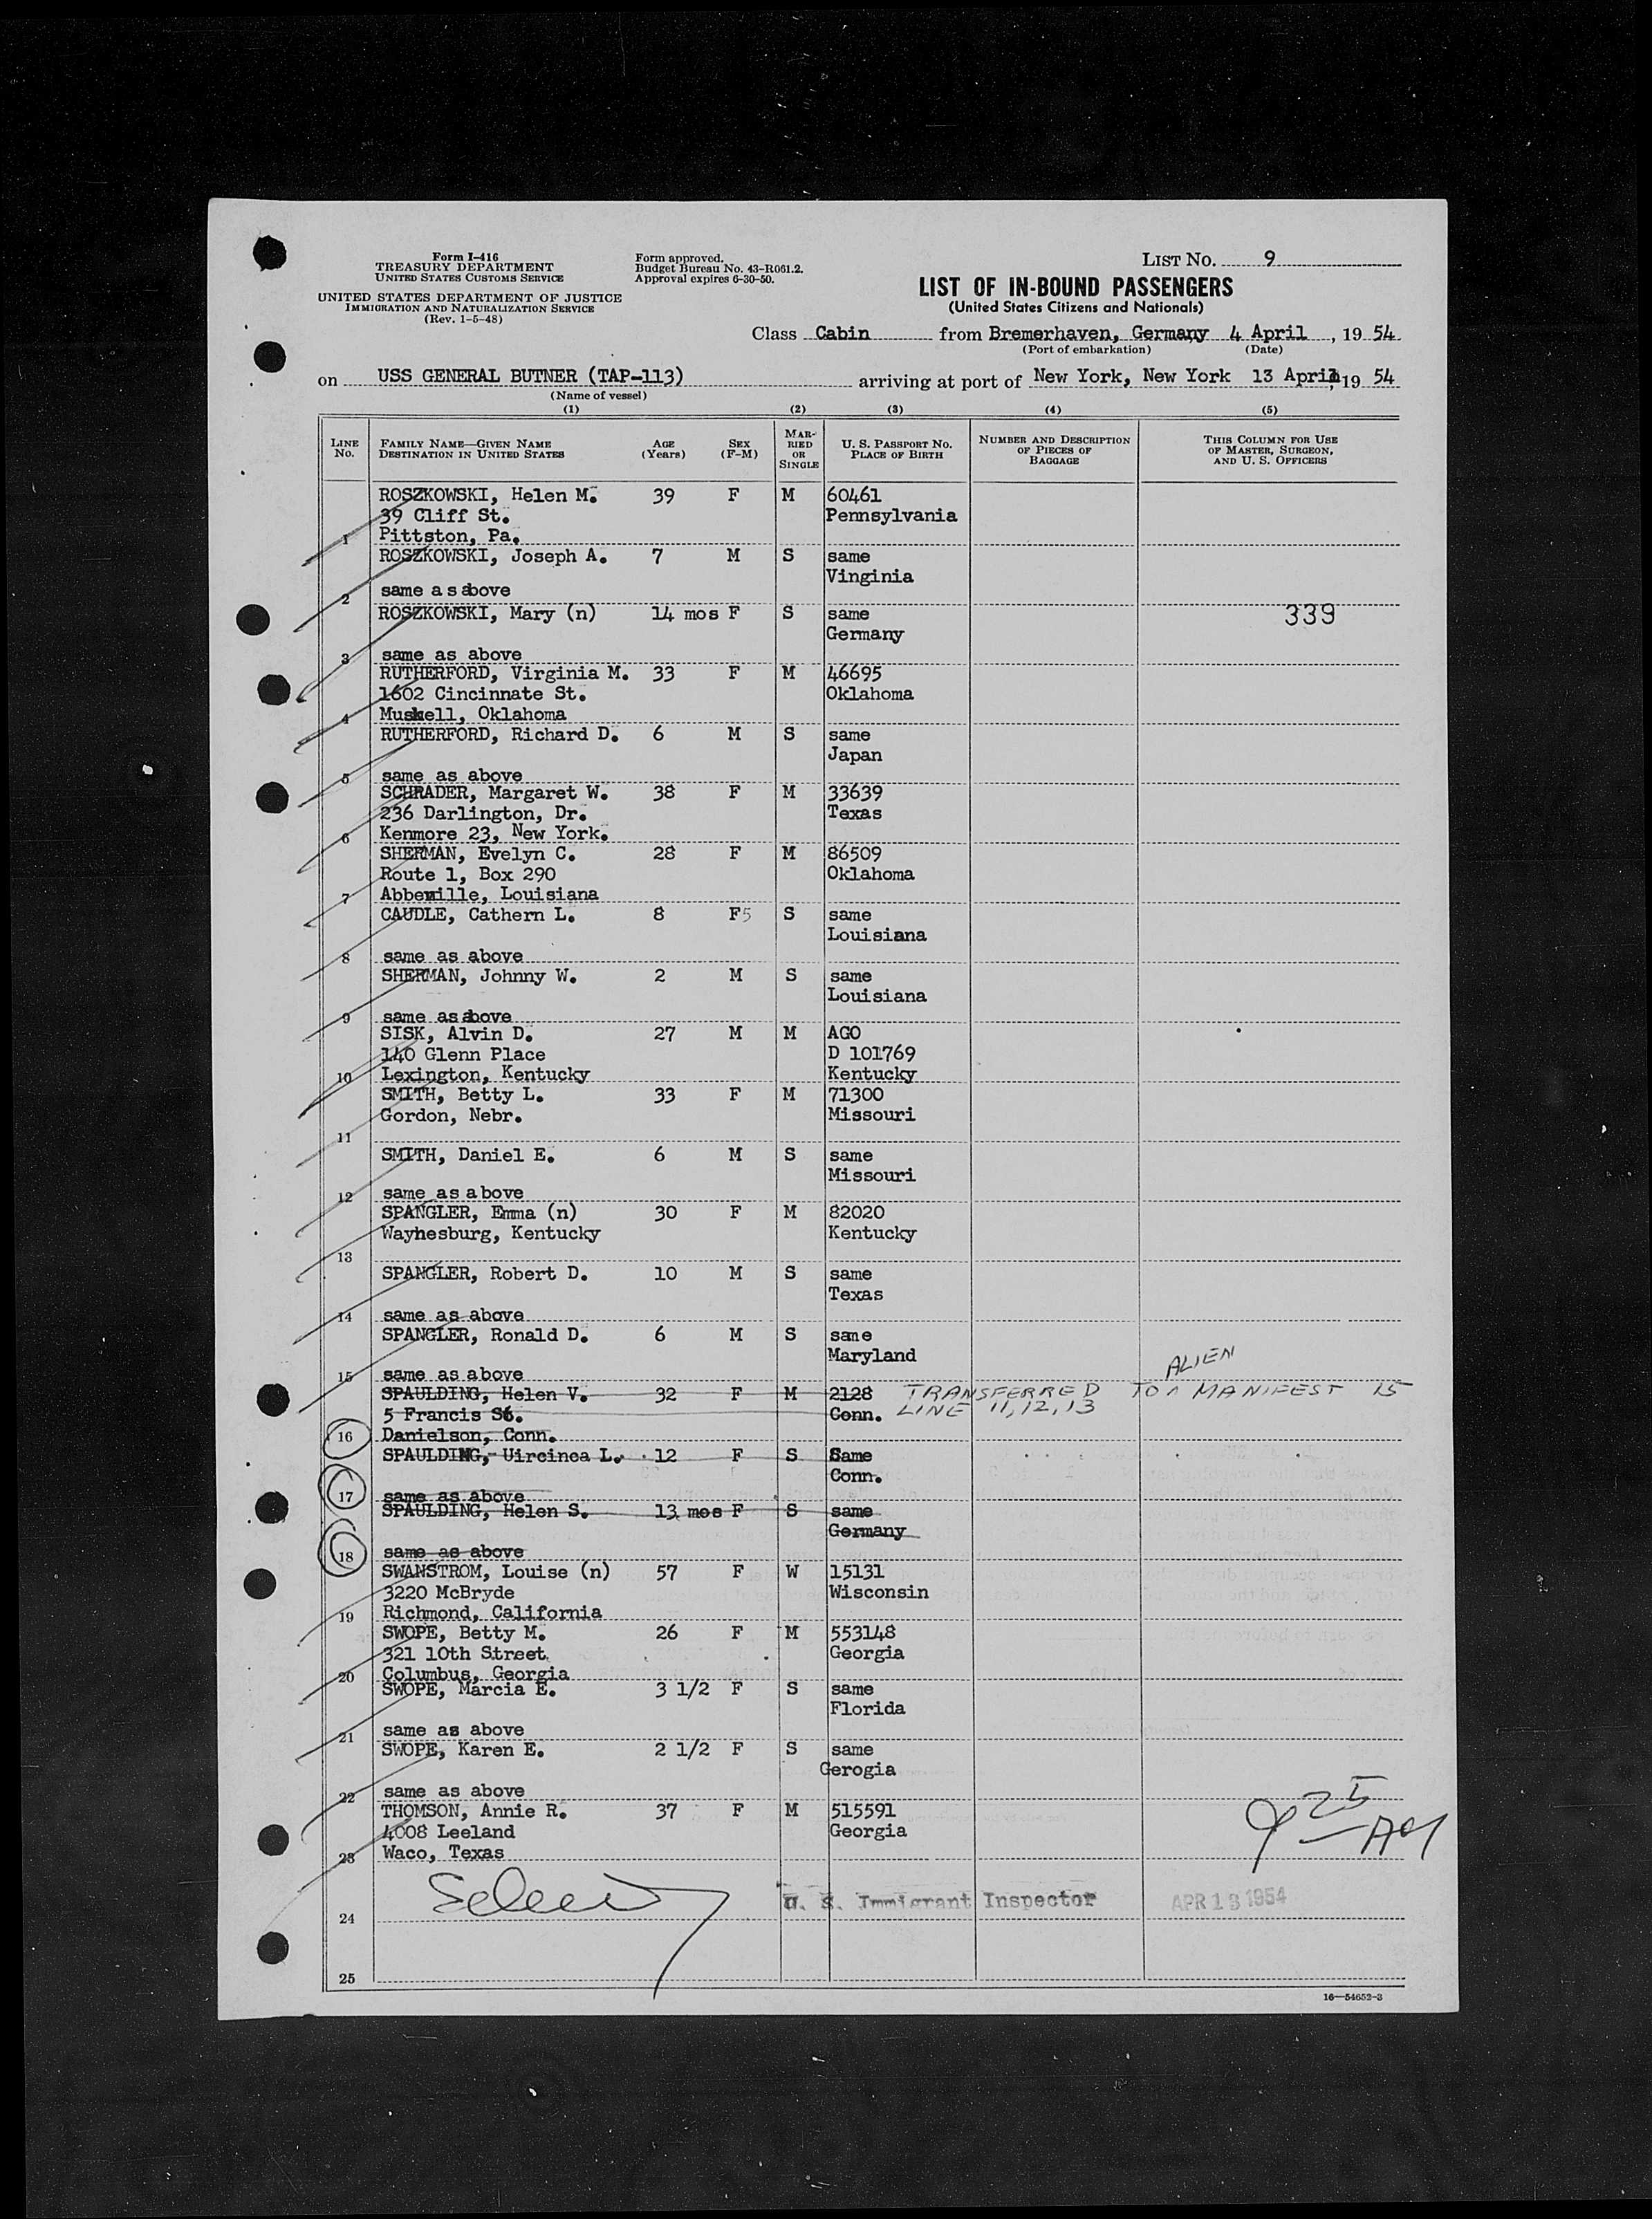 Form I-416
TREASURY DEPARTMENT
UNITED STATES CUSTOMS SERVICE
UNITED STATES DEPARTMENT OF JUSTICE
IMMIGRATION AND NATURALIZATION SERVICE
(Rev. 1-5-48)
Form approved.
Budget Bureau No. 43-R061.2.
Approval expires 6-30-50.
LIST No. 9
LIST OF IN-BOUND PASSENGERS
(United States Citizens and Nationals)
Class Cabin from Bremerhaven, Germany 4 April, 19 54
(Port of embarkation) (Date)
on USS GENERAL BUTNER (TAP-113) arriving at port of New York, New York 13 April, 19 54
(Name of vessel)
(1) (2) (3) (4) (5)
LINE No. FAMILY NAME—GIVEN NAME DESTINATION IN UNITED STATES AGE (Years) SEX (F-M) MARRIED OR SINGLE U. S. PASSPORT NO. PLACE OF BIRTH NUMBER AND DESCRIPTION OF PIECES OF BAGGAGE THIS COLUMN FOR USE OF MASTER, SURGEON, AND U. S. OFFICERS
ROSZKOWSKI, Helen M. 39 F M 60461
39 Cliff St. Pennsylvania
1 Pittston, Pa.
ROSZKOWSKI, Joseph A. 7 M S same
Vinginia
2 same as above
ROSZKOWSKI, Mary (n) 14 mos F S same 339
Germany
3 same as above
RUTHERFORD, Virginia M. 33 F M 46695
1602 Cincinnate St. Oklahoma
4 Muskell, Oklahoma
RUTHERFORD, Richard D. 6 M S same
Japan
5 same as above
SCHRADER, Margaret W. 38 F M 33639
236 Darlington, Dr. Texas
6 Kenmore 23, New York.
SHERMAN, Evelyn C. 28 F M 86509
Route 1, Box 290 Oklahoma
7 Abbeville, Louisiana
CAUDLE, Cathern L. 8 F5 S same
Louisiana
8 same as above
SHERMAN, Johnny W. 2 M S same
Louisiana
9 same as above
SISK, Alvin D. 27 M M AGO
140 Glenn Place D 101769
10 Lexington, Kentucky Kentucky
SMITH, Betty L. 33 F M 71300
Gordon, Nebr. Missouri
11
SMITH, Daniel E. 6 M S same
Missouri
12 same as above
SPANGLER, Emma (n) 30 F M 82020
Wayhesburg, Kentucky Kentucky
13
SPANGLER, Robert D. 10 M S same
Texas
14 same as above
SPANGLER, Ronald D. 6 M S same
Maryland
15 same as above
ALIEN
SPAULDING, Helen V. 32 F M 2128 TRANSFERRED TO ^ MANIFEST 15
5 Francis St. Conn. LINE 11, 12, 13
16 Danielson, Conn.
SPAULDING, Uircinca L. 12 F S Same
Conn.
17 same as above
SPAULDING, Helen S. 13 mos F S same
Germany
18 same as above
SWANSTROM, Louise (n) 57 F W 15131
3220 McBryde Wisconsin
19 Richmond, California
SWOPE, Betty M. 26 F M 553148
321 10th Street Georgia
20 Columbus, Georgia
SWOPE, Marcia E. 3 1/2 F S same
Florida
21 same as above
SWOPE, Karen E. 2 1/2 F S same
Gerogia
22 same as above
THOMSON, Annie R. 37 F M 515591
4008 Leeland Georgia
23 Waco, Texas
9 25 AM
U. S. Immigrant Inspector APR 13 1954
24
25
16—54652-3